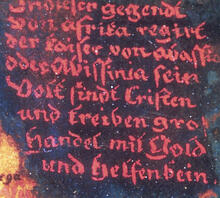 In dieser gegendt
von afrika regirt
der kaiser von abassi
oder Abissinia sein
Volk sindt Cristen
und treiben gro
Handel mit Gold
und Helfenbein